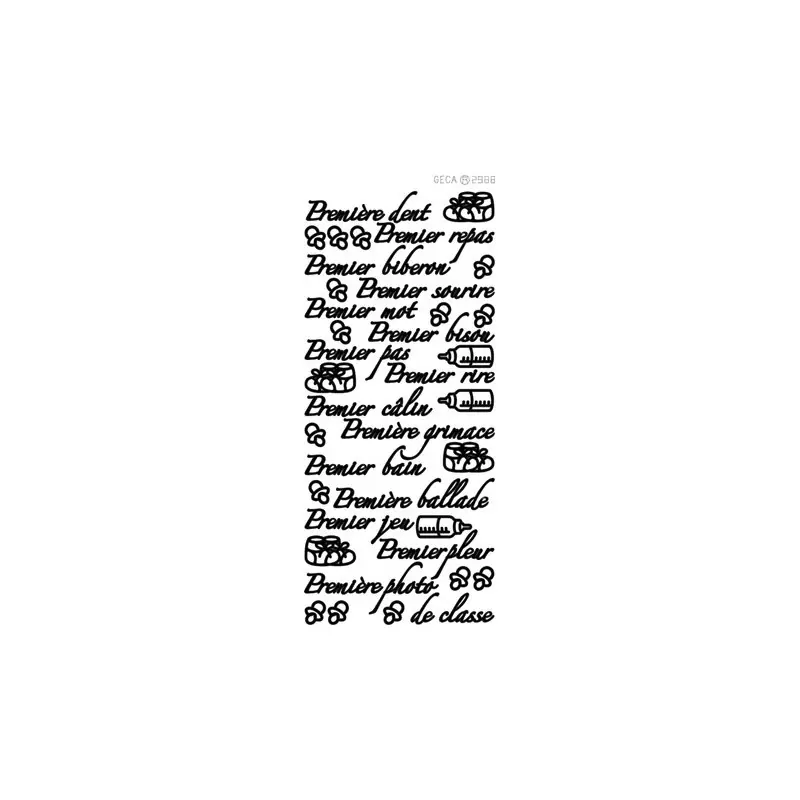 GECA ® 2988
Première dent
Premier repas
Premier biberon
Premier sourire
Premier mot
Premier bisou
Premier pas
Premier rire
Premier câlin
Première grimace
Premier bain
Première ballade
Premier jeu
Premier pleur
Première photo
de classe